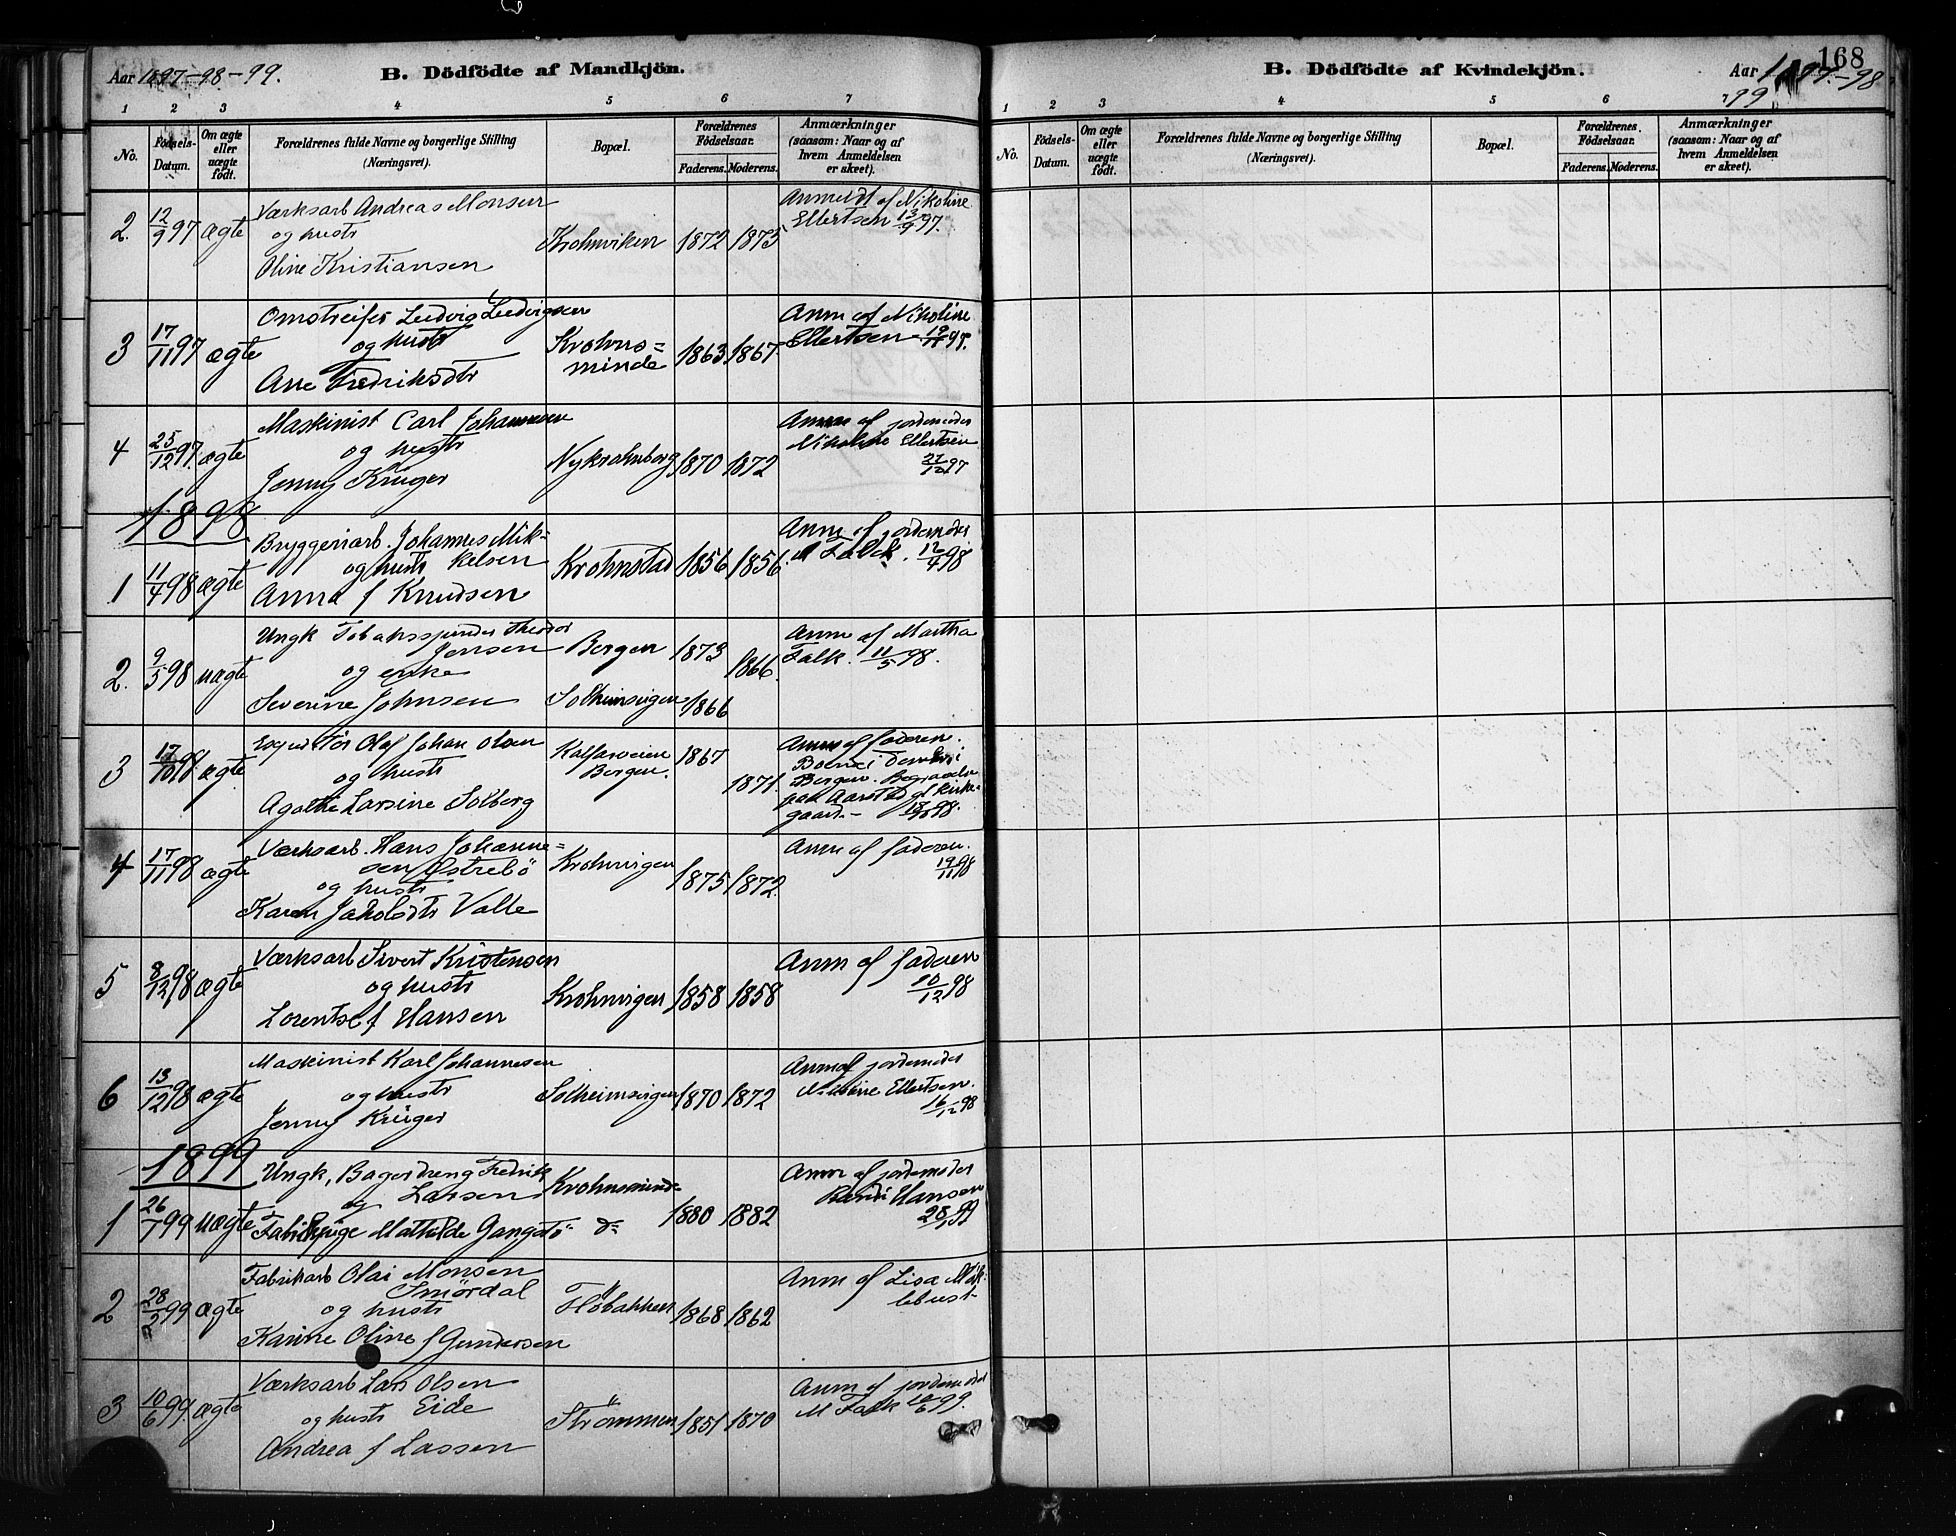 Aar 1897-98-99.
B. Dödfödte af Mandkjön.
1 2 3 4 5 6 7
No.
Födsels-
Datum.
Om ægte
eller
uægte
födt.
Forældrenes fulde Navne og borgerlige Stilling
(Næringsvei).
Bopæl.
Forældrenes
Födselsaar.
Faderens. Moderens.
Anmærkninger
(saasom: Naar og af
hvem Anmeldelsen
er skeet).
2. 12/9 97 ægte
Værksarb Andreas Monsen
og hustr
Oline Kristiansen
Krohnviken 1872 1875
Anmeldt af Nikoline
Ellertsen 13/9 97.
3 17/11 97 ægte
Omstreifer Ludvig Ludvigsen
og hustr
Ane Fredriksdtr
Krohns=
minde 1863 1867
Anm af Nikoline
Ellertsen
4 25/12 97 ægte
Maskinist Carl Johannesen
og hustr
Jenny Krüger
Nykrohnborg 1870 1872
Anm af jordemoder
Nikoline Ellertsen
27/12 97
1898
1 11/4 98 ægte
Bryggeriarb. Johannes Mik=
og hustr kelsen
Anna f Knudsen
Krohnstad 1856 1856
Anm af jordemoder
M Falck. 12/4 98
2. 9/5 98 uægte
Ungk Tobakspinder Theodor
Jensen
og enke
Severine Johnsen
Bergen 1873
1866.
Solheimsvigen 1866
Anm af Martha
Falk. 11/5 98.
3 17/10 98. ægte
Olaf Johan Olsen
og hustr
Agathe Larsine Solberg
Kalfarveien
Bergen. 1867
1871.
Anm af faderen.
Boende i
Bergen. Begravelse
paa Aarstad gl kirke=
gaard. - 98.
4 17/11 98 ægte
Værksarb. Hans Johanne=
sen Østrebö
og hustr
Karen Jakobsdtr Valle
Krohnvigen 1875 1872.
Anm af faderen.
19/11 98
5 8/12 98 ægte
Værksarb Sivert Kristensen
og hustr
Lorentse f Hansen
Krohnvigen 1858 1858
Anm af faderen
10/12 98
6 13/12 98 ægte
Maskinist Karl Johannesen
og hustr
Jenny Krüger
Solheimsvigen 1870 1872
Anm af jordemoder
Nikoline Ellertsen.
16/12 98
1899
1 26/1 99 uægte
Ungk, Bagerdreng Fredrik
og Larsen
Fabrikpige Mathilde Gangstö
Krohnsminde
do 1880 1882
Anm af jordemoder
Hansen
28/1 99
2 28/2 99 ægte
Fabrikarb Olai Monsen
Smördal
og hustr
Karine Oline f Gundersen
Flöbakken 1868 1862
Anm af Lisa Mik=
lebust
3 10/6 99. ægte
Værksarb Lars Olsen
og hustr Eide
Andrea f Lassen
Strömmen 1851 1870
Anm af jordemoder
M Falk 10/6 99.
B. Dödfödte af Kvindekjön.
Aar 1897-98
99
168
1 2 3 4 5 6 7
No.
Födsels-
Datum.
Om ægte
eller
uægte
födt.
Forældrenes fulde Navne og borgerlige Stilling
(Næringsvei).
Bopæl.
Forældrenes
Födselsaar.
Faderens. Moderens.
Anmærkninger
(saasom: Naar og af
hvem Anmeldelsen
er skeet).